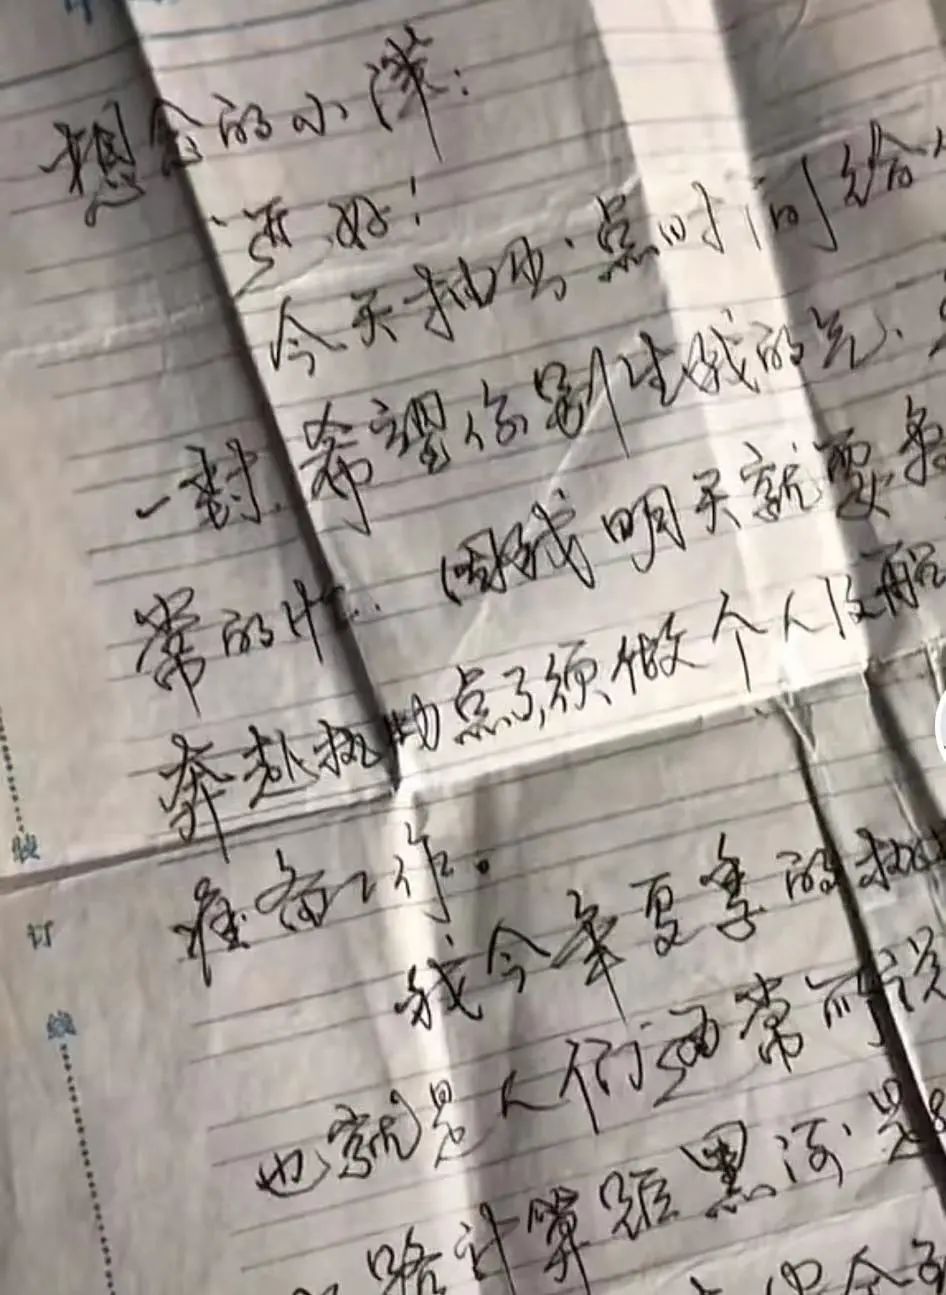 想念的小萍：
还好！
今天抽出点时间给
一封，希望你别生我的气、
常的忙… 因我明天就要
奔赴执勤点了，须做个人
准备工作。
我今年夏季的执
也就是人们通常所说
路计算距黑河
装
订
线